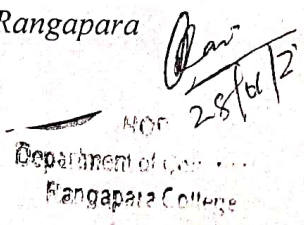 Rangapara
28/01/2
HOD
Department of Com
Rangapara College